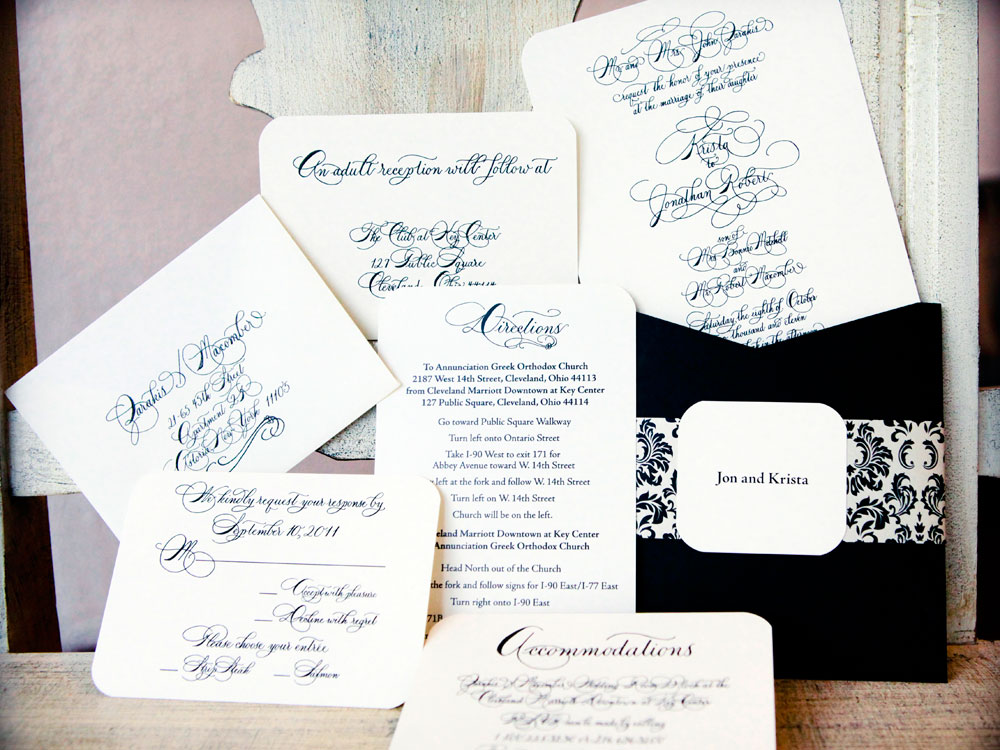 Mr. and Mrs. John Zarakis
request the honor of your presence
at the marriage of their daughter
Krista
to
Jonathan Robert
son of
Mrs. Bonnie Mitchell
and
Mr. Robert Maxomber
Saturday the eighth of October
thousand and eleven
An adult reception will follow at
The Club at Key Center
127 Public Square
Cleveland, Ohio 44114
Zarakis / Maxomber
21-65 45th Street
Apartment
Astoria New York 11105
Directions
To Annunciation Greek Orthodox Church
2187 West 14th Street, Cleveland, Ohio 44113
from Cleveland Marriott Downtown at Key Center
127 Public Square, Cleveland, Ohio 44114
Go toward Public Square Walkway
Turn left onto Ontario Street
Take I-90 West to exit 171 for
Abbey Avenue toward W. 14th Street
left at the fork and follow W. 14th Street
Turn left on W. 14th Street
Church will be on the left.
Cleveland Marriott Downtown at Key Center
Annunciation Greek Orthodox Church
Head North out of the Church
the fork and follow signs for I-90 East/I-77 East
Turn right onto I-90 East
Jon and Krista
We kindly request your response by
September 10, 2011
M
Accept with pleasure
Decline with regret
Please choose your entrée
Strip Steak Salmon
Accommodations